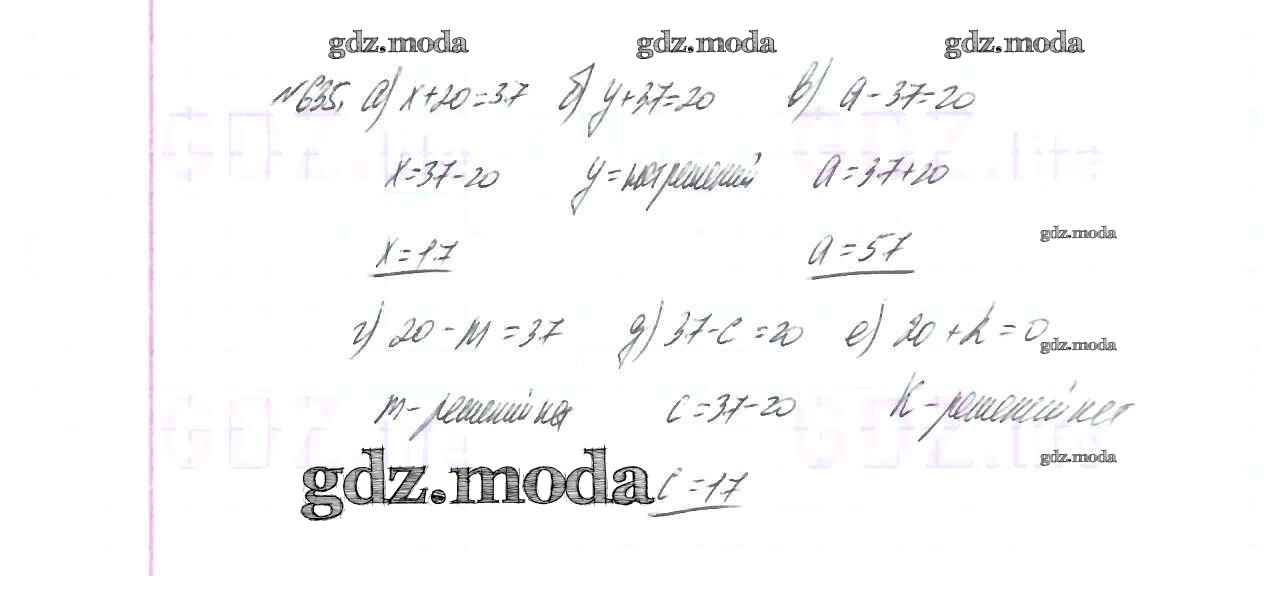 gdz.moda gdz.moda gdz.moda
№635. а) x+20=37 б) y+37=20 в) a-37=20
x=37-20 y=нет решений a=37+20
x=17 a=57 gdz.moda
г) 20-m=37 д) 37-c=20 е) 20+k=0 gdz.moda
m-решений нет c=37-20 k-решений нет
gdz.moda c=17 gdz.moda